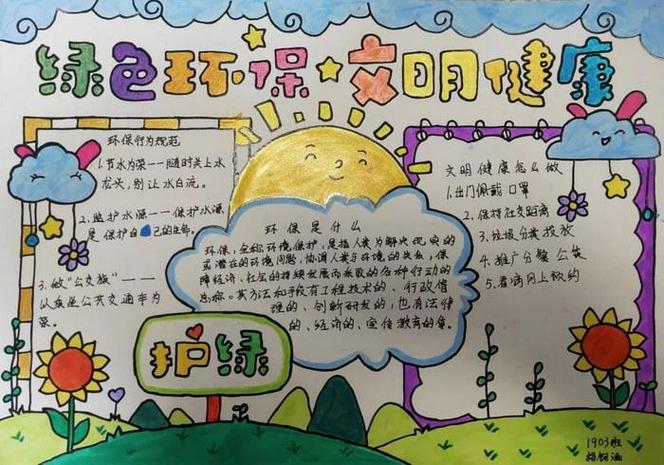 绿色环保·文明健康
环保行为规范
1.节水为荣——随时关上水
龙头,别让水白流。
2.监护水源——保护水源
是保护自己的生命。
3.做“公交族”——
以乘坐公共交通车为
荣。
环保是什么
环保,全称环境保护,是指人类为解决现实的
或潜在的环境问题,协调人类与环境的关系,保
障经济、社会的持续发展而采取的各种行动的
总称。其方法和手段有工程技术的、行政管
理的、创新研发的,也有法律
的、经济的、宣传教育的等。
护绿
文明健康怎么做
1.出门佩戴口罩
2.保持社交距离
3.垃圾分类投放
4.推广分餐公筷
5.看病网上预约
1903班